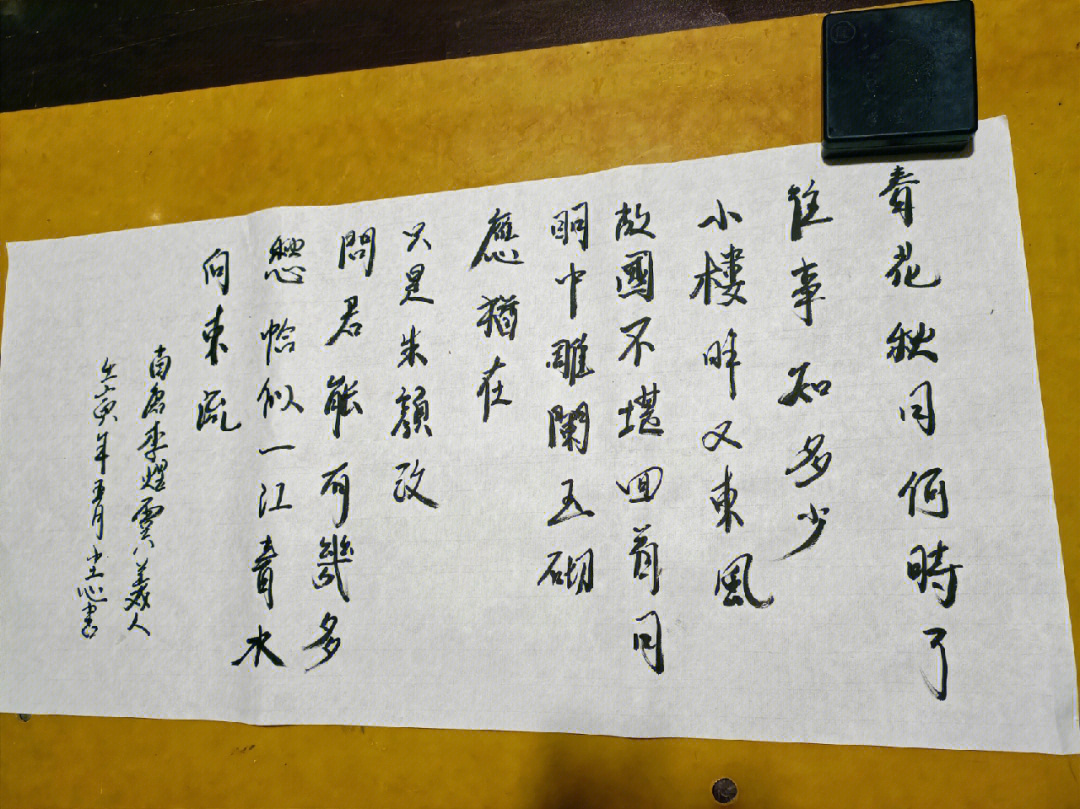 春花秋月何時了
往事知多少
小樓昨又東風
故國不堪回首月
明中雕闌玉砌
應猶在
只是朱顏改
問君能有幾多
愁恰似一江春水
向東流
南唐李煜虞美人
壬寅年 月 心書